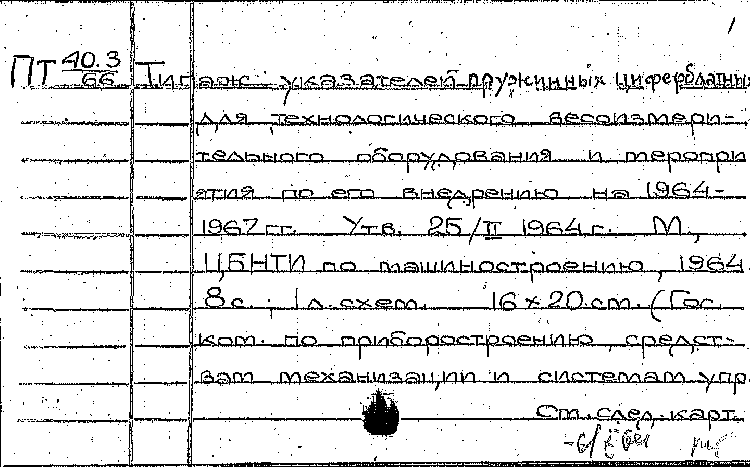 1
ПТ 40.3/66 Типаж указателей пружинных циферблатных
для технологического весоизмери-
тельного оборудования и меропри
ятия по его внедрению на 1964-
1967 гг. Утв. 25/II 1964 г. М.,
ЦБНТИ по машиностроению, 1964
8 с.; 1 л. схем. 16 × 20 см. (Гос.
ком. по приборостроению, средст-
вам механизации и системам упр
См. след. карт.